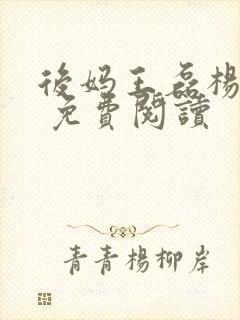 後妈王磊楊
免費閱讀
青青楊柳岸